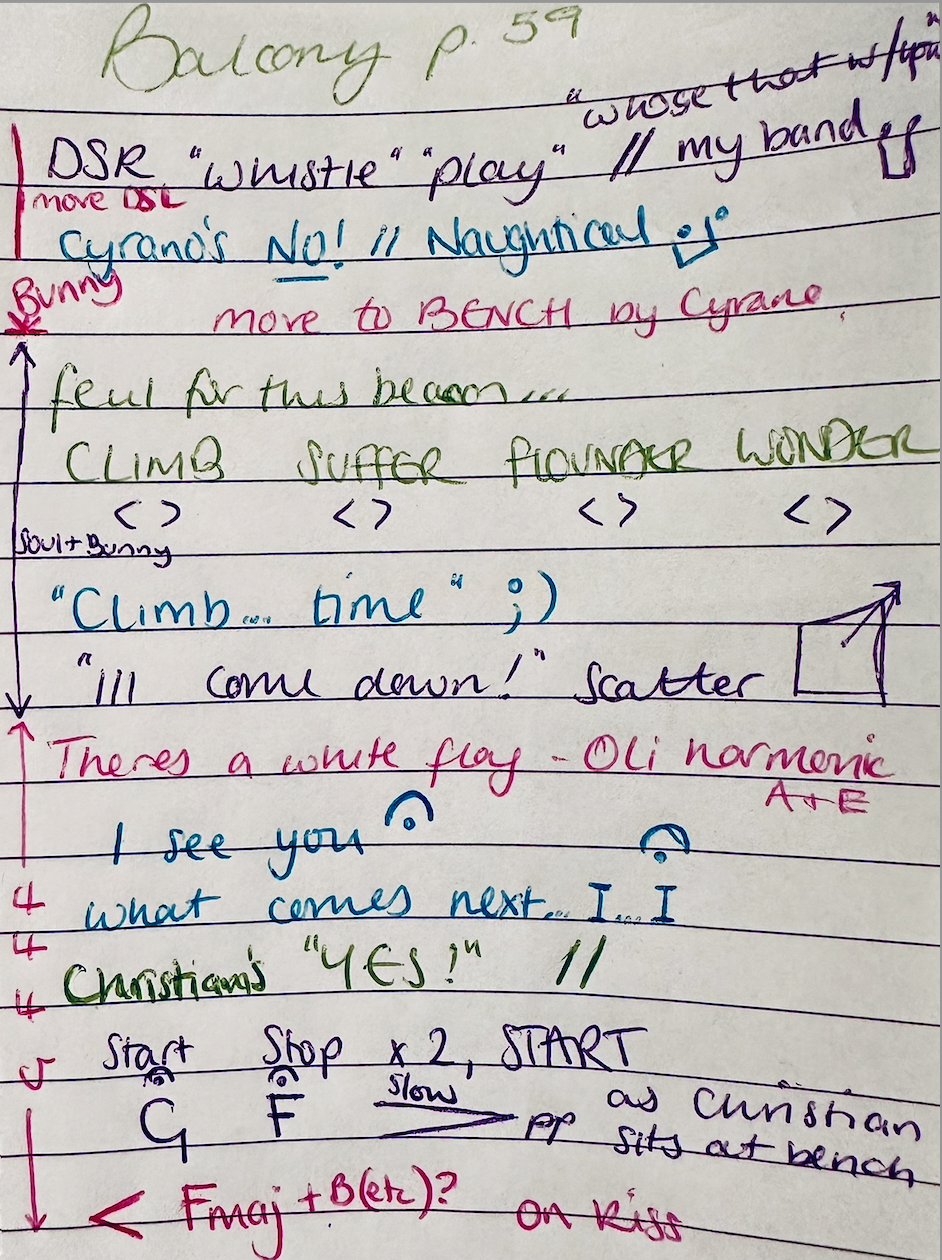 Balcony p. 59
"whose that w/you"
DSR "whistle" "play" // my band
move DSL
Cyrano's NO! // Naughtical
Bunny
move to BENCH by Cyrano
feul for this beacon...
CLIMB SUFFER FLOUNDER WONDER
<> <> <> <>
Soul+Bunny
"Climb... time" ;)
"I'll come down!" scatter
Theres a white flag - Oli harmonic
A+E
I see you
what comes next... I... I
4
4
Christian's "YES!" //
4
Start Stop x 2, START
5
G F slow > pp as Christian
sits at bench
< Fmaj + B(etc)? on Kiss